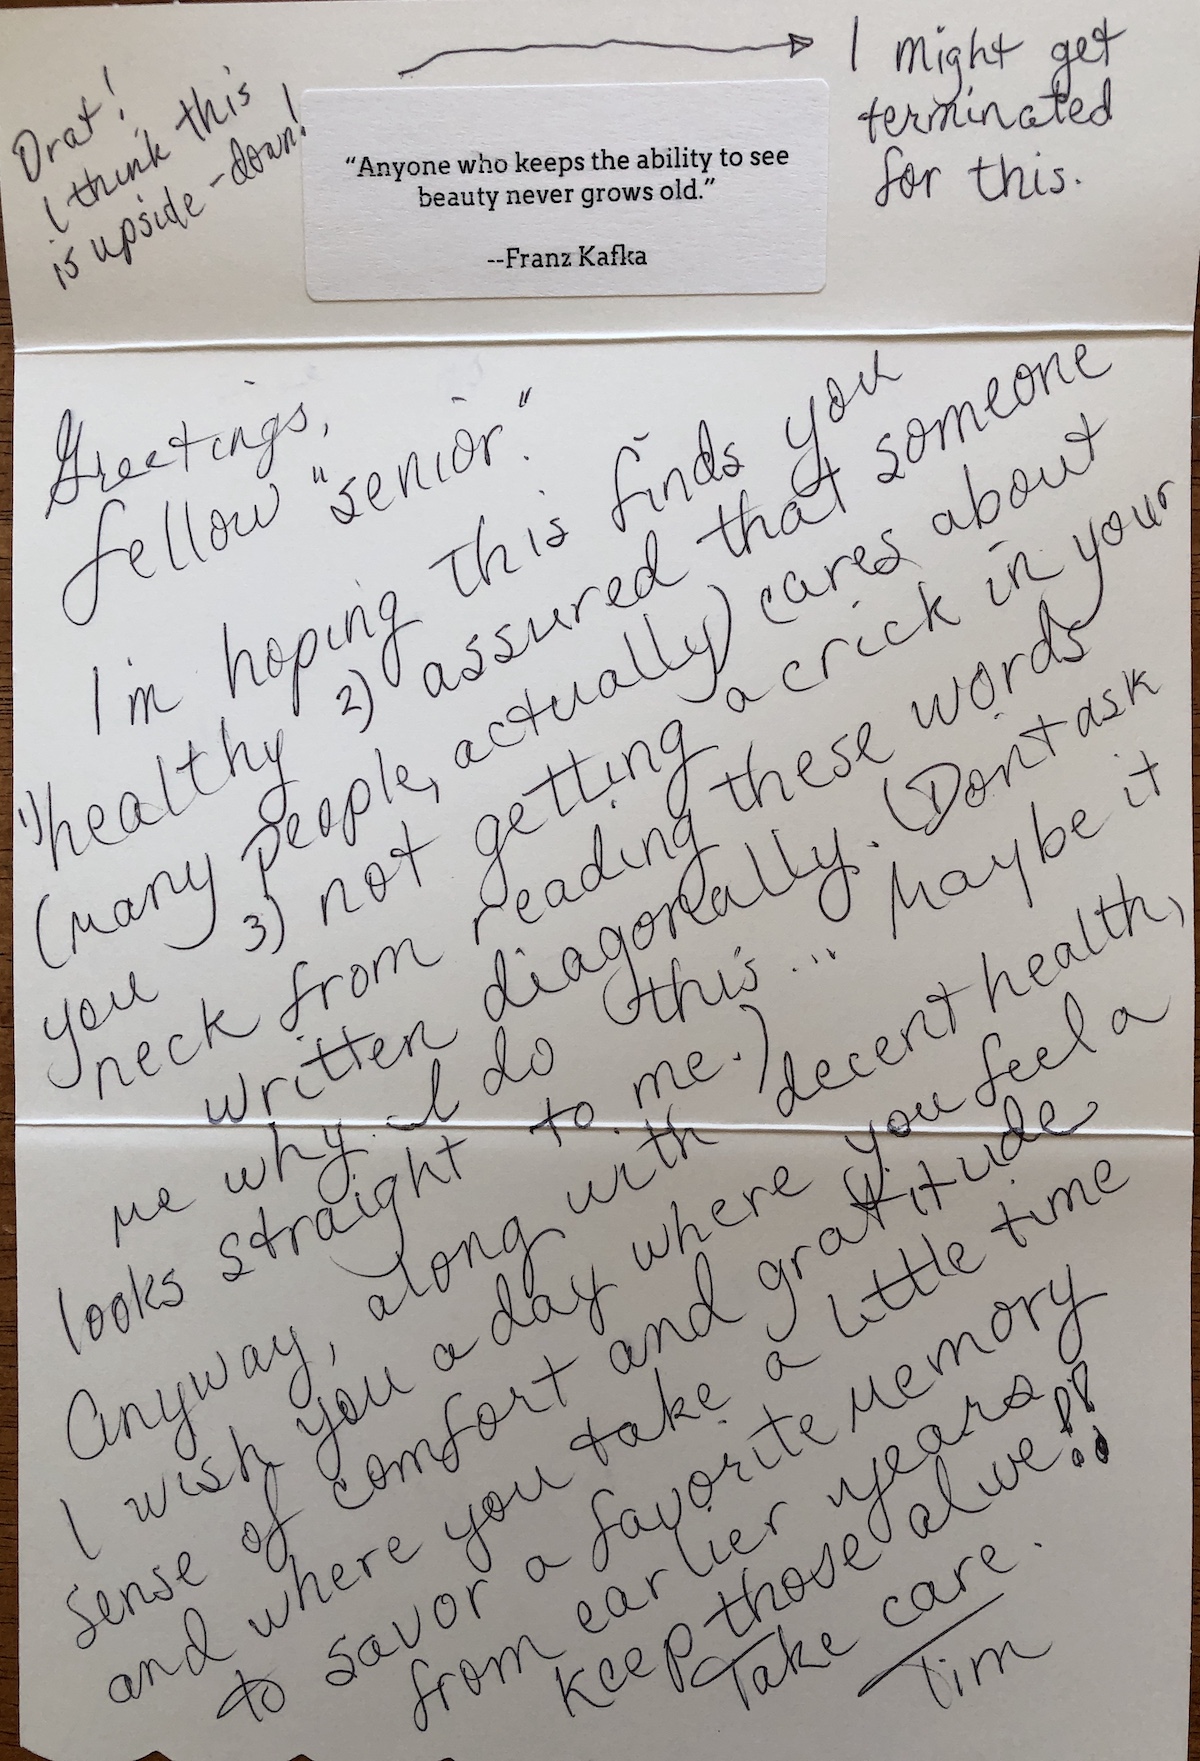 Drat!
I think this
is upside-down!
I might get
terminated
for this.
“Anyone who keeps the ability to see
beauty never grows old.”
--Franz Kafka
Greetings,
fellow "senior."
I'm hoping this finds you
1) healthy 2) assured that someone
(many people, actually) cares about
you 3) not getting a crick in your
neck from reading these words
written diagonally. (Don't ask
me why I do this... Maybe it
looks straight to me.)
Anyway, along with decent health,
I wish you a day where you feel a
sense of comfort and gratitude
and where you take a little time
to savor a favorite memory
from earlier years.
Keep those alive!!
Take care.
Tim